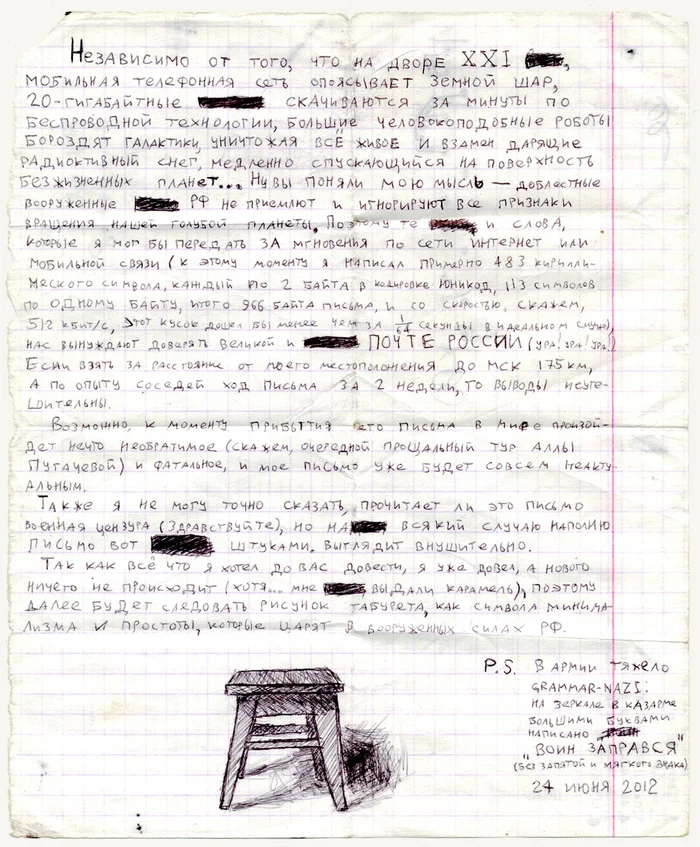 Независимо от того, что на дворе XXI ,
мобильная телефонная сеть опоясывает земной шар,
20-гигабайтные скачиваются за минуты по
беспроводной технологии, большие человокоподобные роботы
бороздят галактики, уничтожая всё живое и взамен дарящие
радиоактивный снег, медленно спускающийся на поверхность
безжизненных планет... Ну вы поняли мою мысль — доблестные
вооруженные РФ не приемлют и игнорируют все признаки
вращения нашей голубой планеты. Поэтому те и слова,
которые я мог бы передать за мгновения по сети интернет или
мобильной связи (к этому моменту я написал примерно 483 кирилли-
ческого символа, каждый по 2 байта в кодировке Юникод, 113 символов
по одному байту, итого 966 байта письма, и со скоростью, скажем,
512 кбит/с, этот кусок дошел бы менее чем за 1/64 секунды в идеальном случае),
нас вынуждают доверять великой и ПОЧТЕ РОССИИ (ура! ура! ура!)
Если взять за расстояние от моего местоположения до МСК 175 км,
а по опыту соседей ход письма за 2 недели, то выводы неуте-
шительны.
Возможно, к моменту прибытия этого письма в мире произой-
дет нечто необратимое (скажем, очередной прощальный тур Аллы
Пугачевой) и фатальное, и мое письмо уже будет совсем неакту-
альным.
Также я не могу точно сказать, прочитает ли это письмо
военная цензура (здравствуйте), но на всякий случаю наполню
письмо вот штуками. Выглядит внушительно.
Так как всё что я хотел до вас довести, я уже довел, а нового
ничего не происходит (хотя... мне выдали карамель), поэтому
далее будет следовать рисунок табурета, как символа минима-
лизма и простоты, которые царят в вооруженных силах РФ.
P.S. В армии тяжело
GRAMMAR-NAZI:
на зеркале в казарме
большими буквами
написано
"ВОИН ЗАПРАВСЯ"
(без запятой и мягкого знака)
24 июня 2012